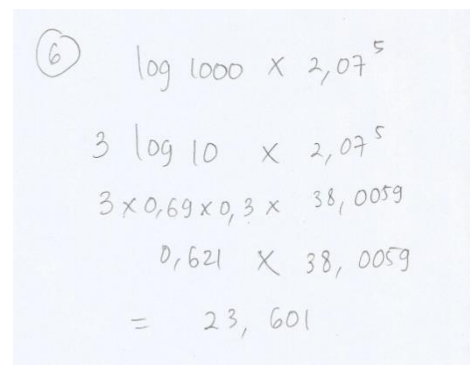 6
log 1000 x 2,07⁵
3 log 10 x 2,07⁵
3 x 0,69 x 0,3 x 38,0059
0,621 x 38,0059
= 23,601